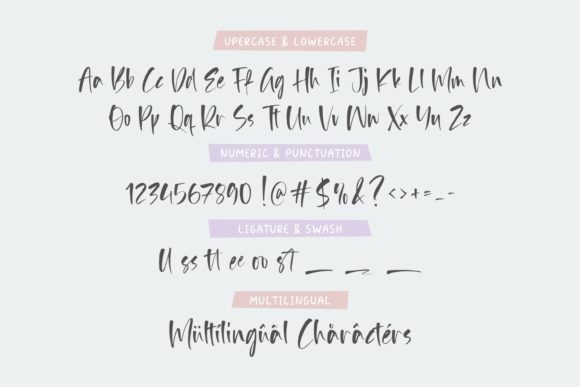 UPERCASE & LOWERCASE
Aa Bb Cc Dd Ee Ff Gg Hh Ii Jj Kk Ll Mm Nn
Oo Pp Qq Rr Ss Tt Uu Vv Ww Xx Yy Zz
NUMERIC & PUNCTUATION
1234567890 !@#$%&? <>+=_-
LIGATURE & SWASH
ll ss tt ee oo st
MULTILINGUAL
Mültilingúâl Chåráctérs